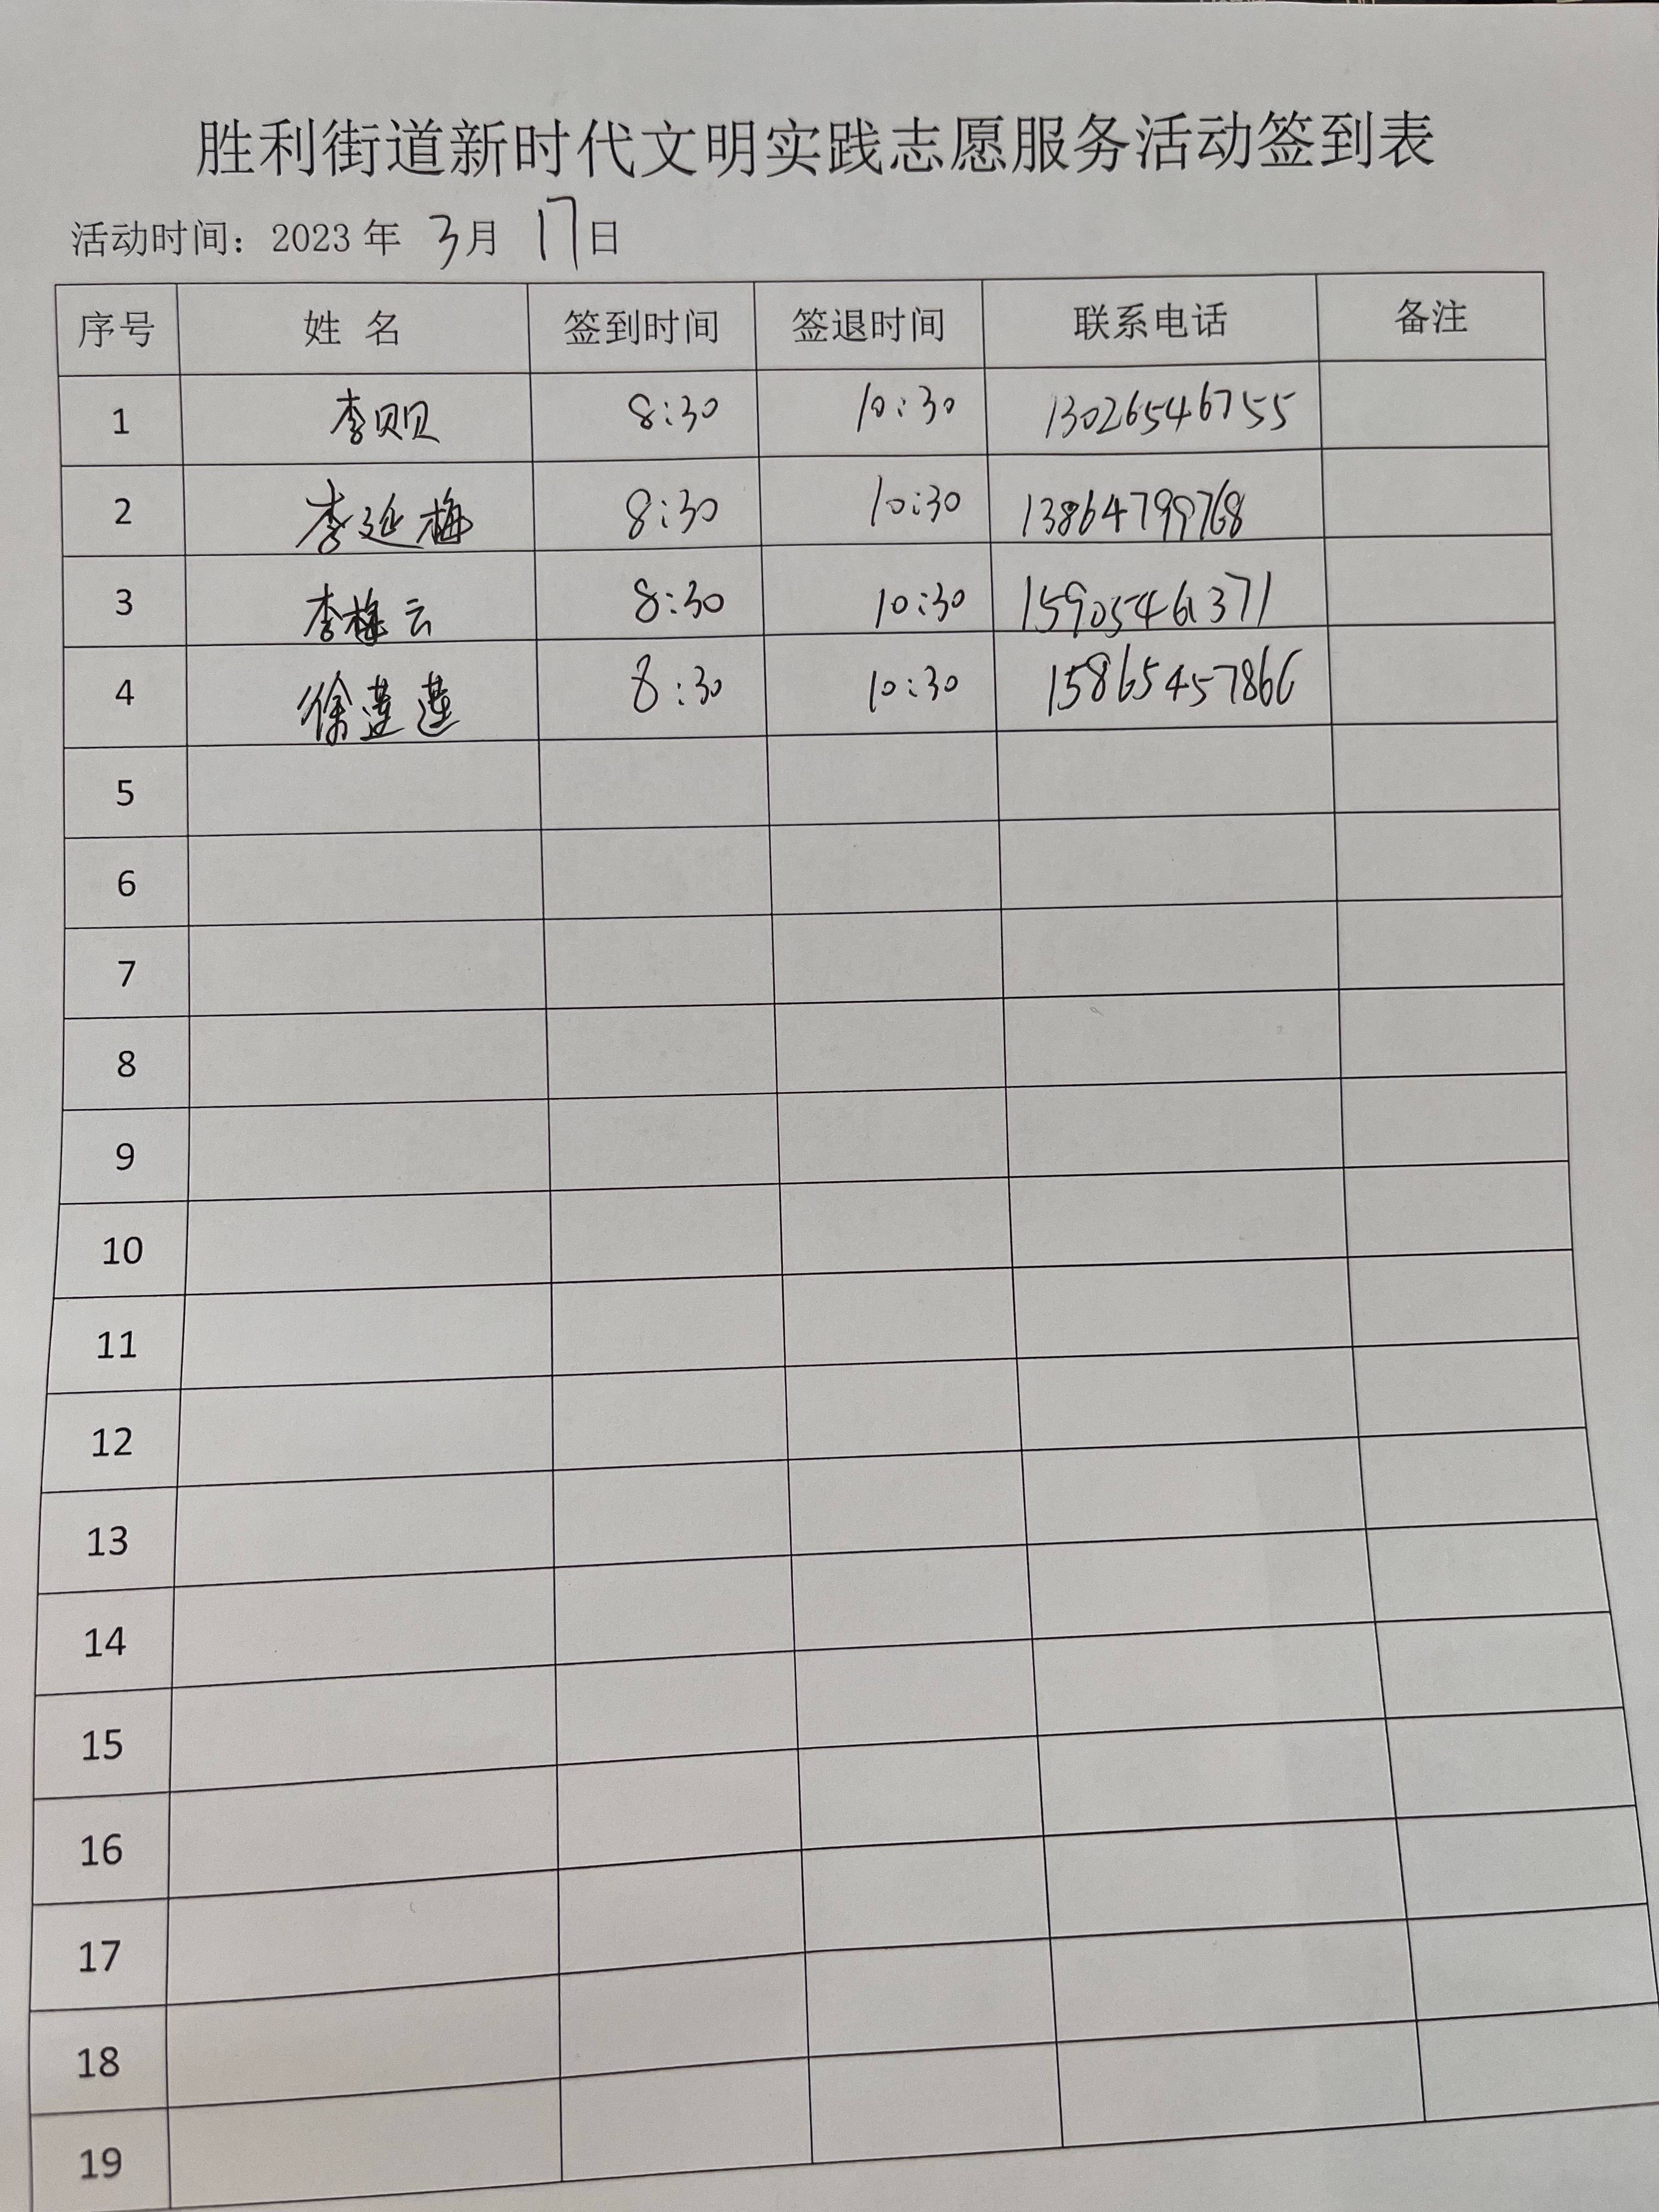 胜利街道新时代文明实践志愿服务活动签到表
活动时间：2023 年 3月 17日
序号 姓 名 签到时间 签退时间 联系电话 备注
1 李贝贝 8:30 10:30 13026546755
2 李延梅 8:30 10:30 13864799768
3 李梅云 8:30 10:30 15905461371
4 徐莲莲 8:30 10:30 15865457866
5
6
7
8
9
10
11
12
13
14
15
16
17
18
19